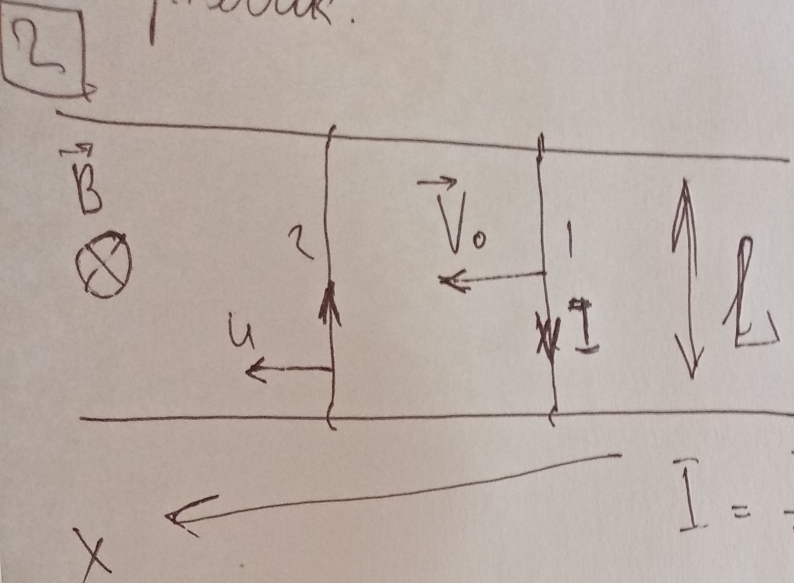 2
B⃗
2
V⃗₀
1
u
I
L
X
I =